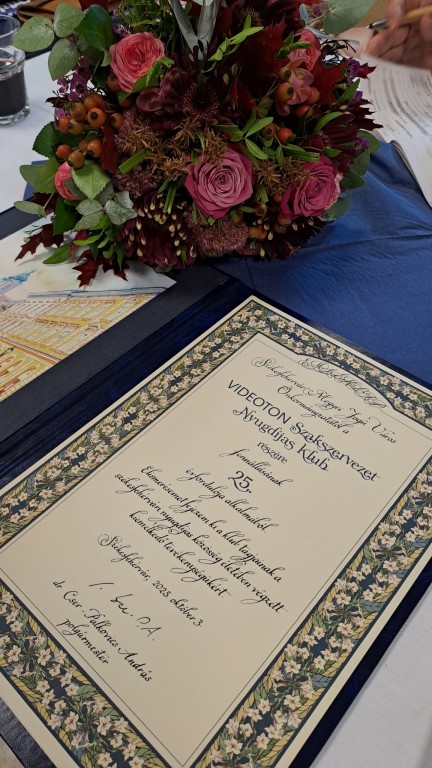 EMLÉKLAP
Székesfehérvár Megyei Jogú Város
Önkormányzatától a
VIDEOTON Szakszervezet
Nyugdíjas Klub
részére
fennállásának
25.
évfordulója alkalmából.
Elismerésemet fejezem ki a klub tagjainak a
székesfehérvári nyugdíjas közösség életében végzett
kiemelkedő tevékenységükért.
Székesfehérvár, 2025. október 3.
dr. Cser-Palkovics András
polgármester